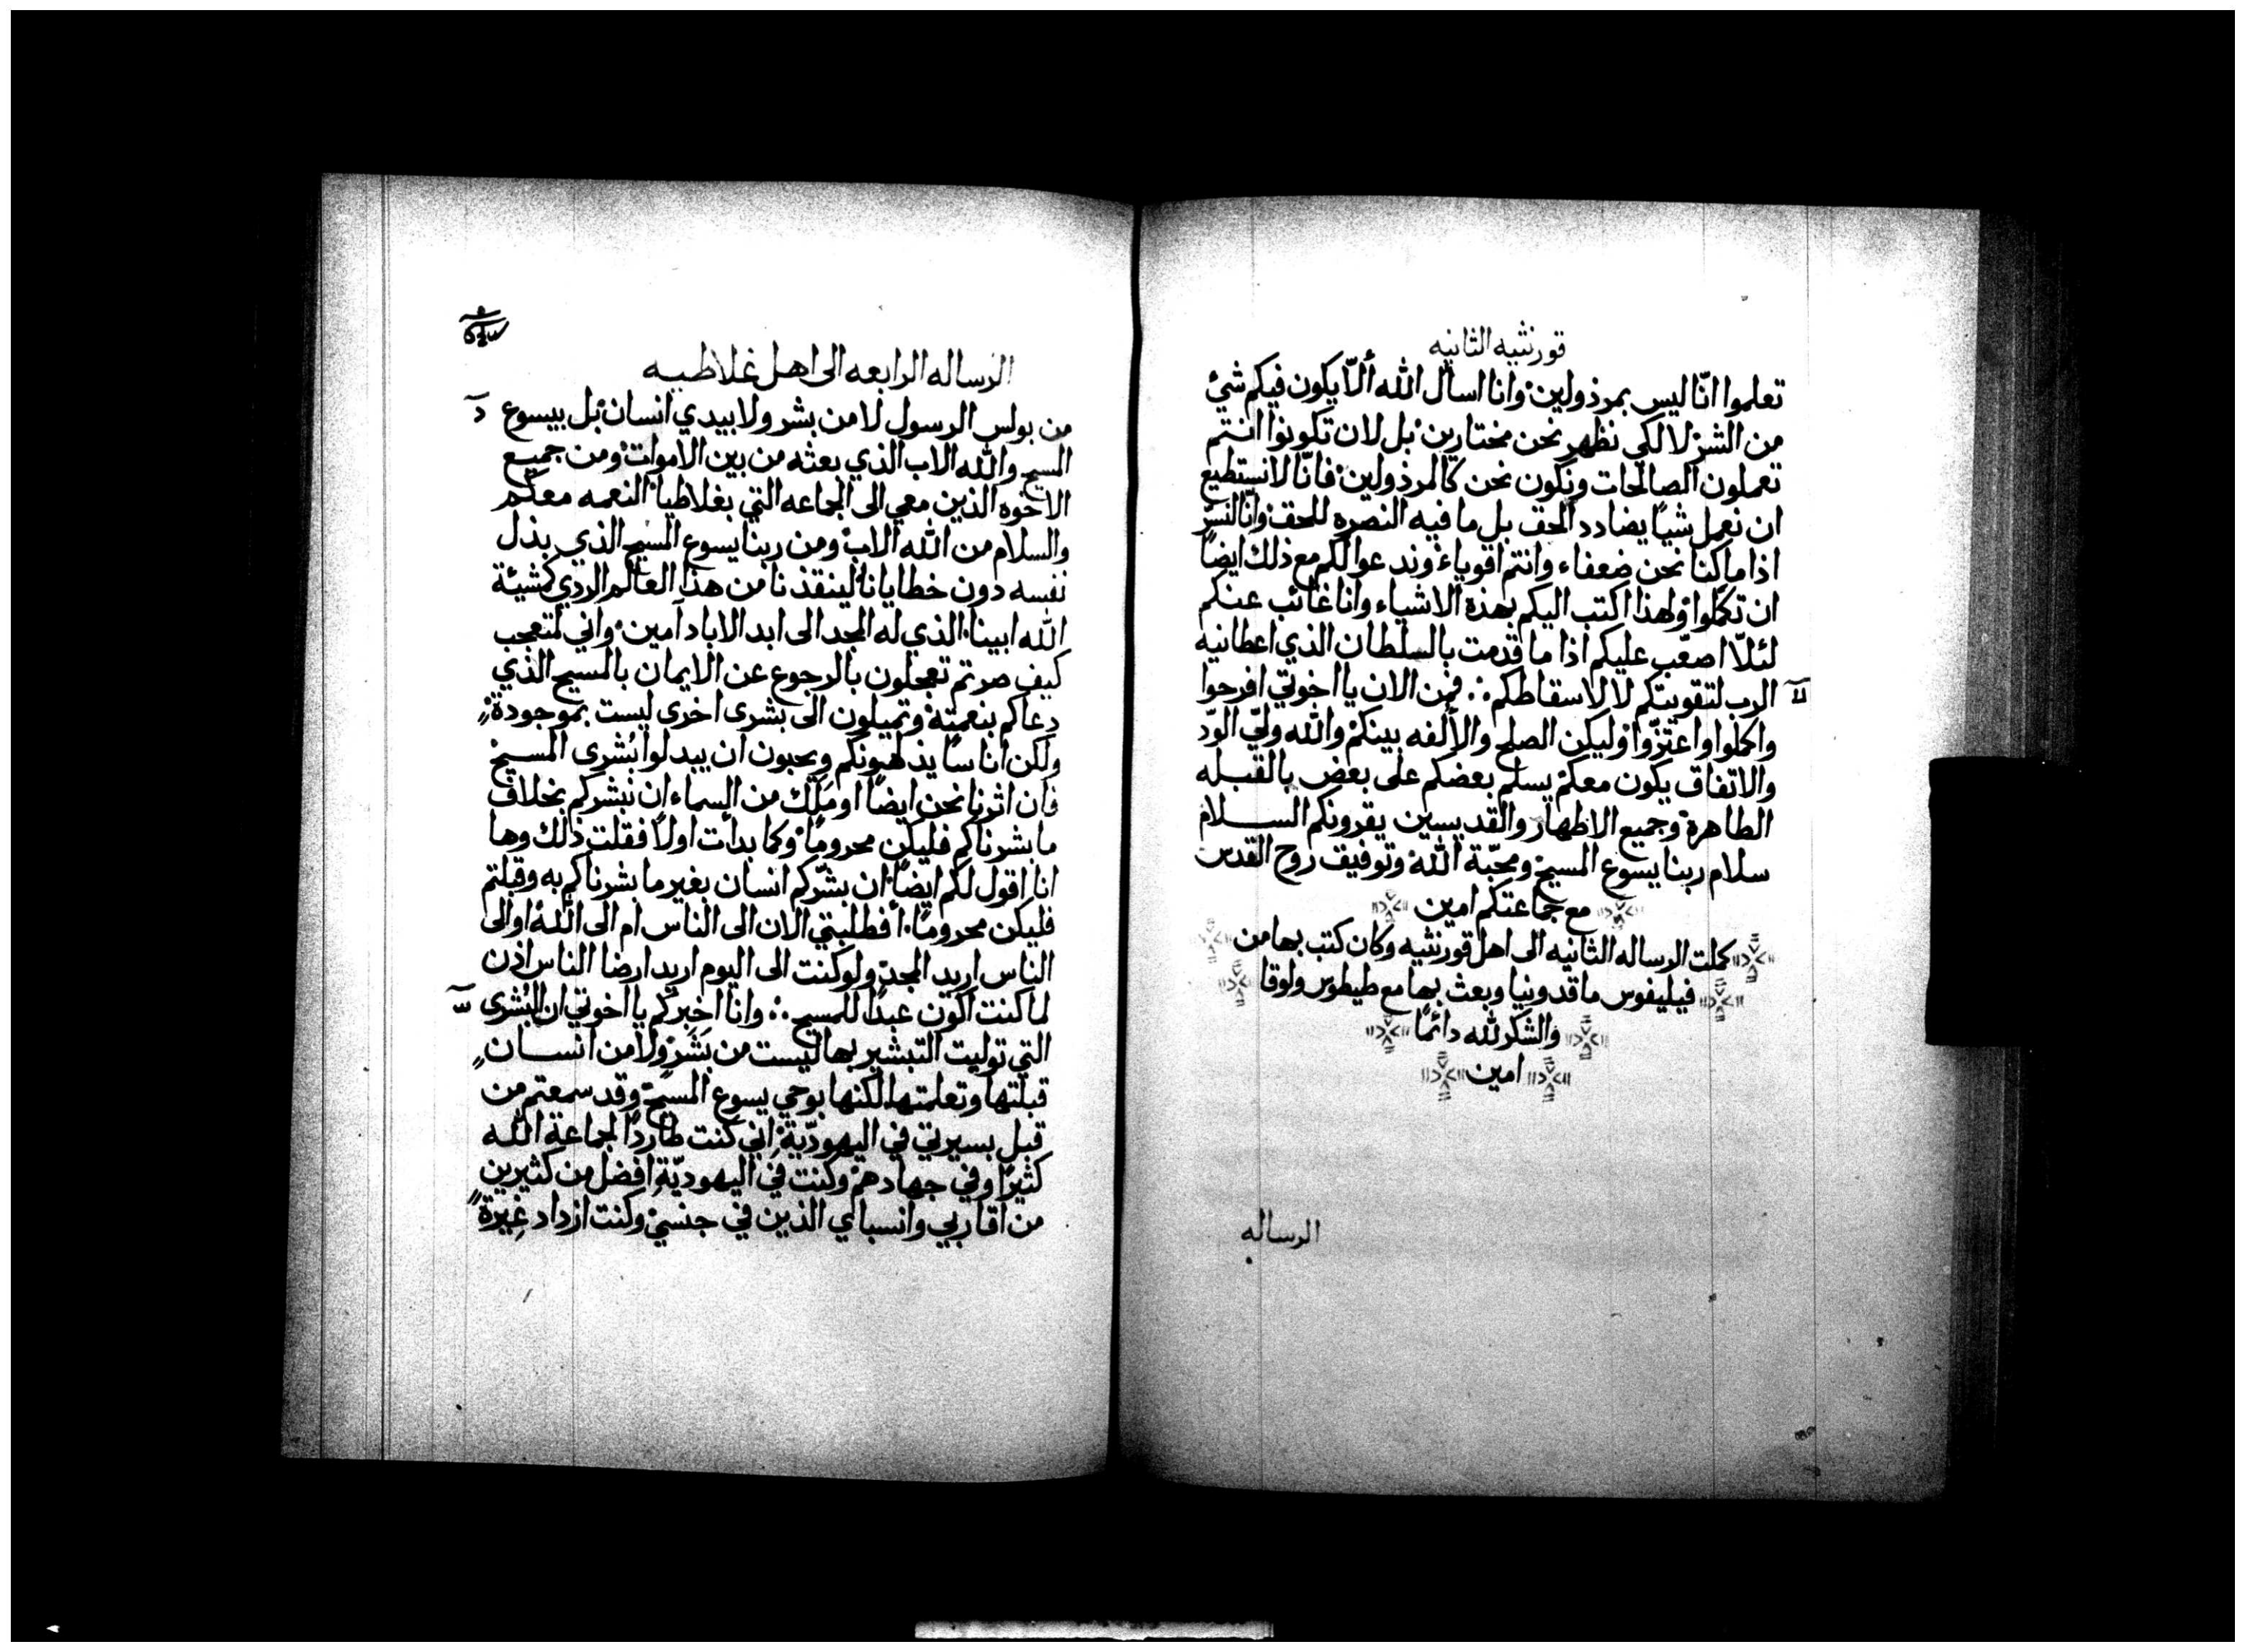 قورنثيه الثانيه
تعلموا انّا ليس بمرذولين وانا اسأل الله ألّا يكون فيكم شئ
من الشر لا لكي نظهر نحن مختارين بل لان تكونوا انتم
تعملون الصالحات ونكون نحن كالمرذولين فانّا لا نستطيع
ان نعمل شيًا يضادد الحق بل ما فيه النصره للحق وانّا لنسرّ
اذا ما كنا نحن ضعفاء وانتم اقوياء وندعوا لكم مع ذلك ايضًا
ان تكملوا ولهذا اكتب اليكم بهذه الاشياء وانا غائب عنكم
لئلّا اصعّب عليكم اذا ما قدمت بالسلطان الذي اعطانيه
الرب لتقويتكم لا لاسقاطكم فمن الان يا اخوتي افرحوا
واكملوا واعتزّوا وليكن الصلح والألفه بينكم والله وليّ الودّ
والاتفاق يكون معكم يسلم بعضكم على بعض بالقبله
الطاهرة وجميع الاطهار والقديسين يقرونكم السلام
سلام ربنا يسوع المسيح ومحبّة الله وتوفيق روح القدس
مع جماعتكم امين
كملت الرساله الثانيه الى اهل قورنثيه وكان كتب بها من
فيليفوس ماقدونيا وبعث بها مع طيطوس ولوقا
والشكر لله دائمًا
امين
الرساله
الرساله الرابعه الى اهل غلاطيه
من بولس الرسول لا من بشر ولا بيدي انسان بل بيسوع
المسيح والله الاب الذي بعثه من بين الاموات ومن جميع
الاخوه الذين معي الى الجماعه التي بغلاطيا النعمه معكم
والسلام من الله الاب ومن ربنا يسوع المسيح الذي بذل
نفسه دون خطايانا لينقذنا من هذا العالم الردي كمشيئة
الله ابينا الذي له المجد الى ابد الاباد آمين واني لمتعجب
كيف صرتم تعجلون بالرجوع عن الايمان بالمسيح الذي
دعاكم بنعمته وتميلون الى بشرى اخرى ليست بموجودة
ولكن اناسًا يذلهونكم ويحبون ان يبدلوا بُشرى المسيح
فان اثرنا نحن ايضًا او مَلَك من السماء ان نبشركم بخلاف
ما بشرناكم فليكن محرومًا وكما بدأت اولًا فقلت ذلك وها
انا اقول لكم ايضًا ان بشّركم انسان بغير ما بشرناكم به وقبلتم
فليكن محرومًا أفطلبتي الان الى الناس ام الى الله او الى
الناس اريد المجد ولو كنت الى اليوم اريد ارضا الناس اذن
لما كنت اكون عبدًا للمسيح وانا اخبركم يا اخوتي ان البُشرى
التي توليت التبشير بها ليست من بَشَر ولا من انسان
قبلتها وتعلمتها لكنها بوحي يسوع المسيح وقد سمعتم من
قبل بسيرتي في اليهوديّة اني كنت طاردًا لجماعة الله
كثيرًا وفي جهادهم وكنت في اليهوديّة افضل من كثيرين
من اقاربي وانسباي الذين في جنسي وكنت ازداد غِيرة